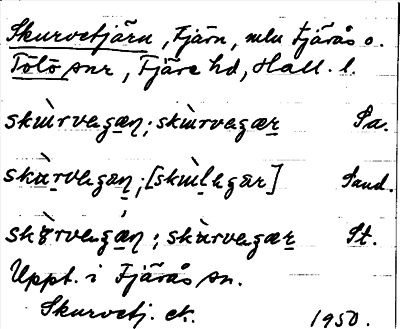 Skurvetjärn, Tjärn, mln Fjärås o.
Tölö snr, Fjäre hd, Hall. l.
skùrvegæn; skùrvegær Pa.
skùrvegan; [skùlegär] Sand.
skùrvegán; skùrvegær St.
Uppt. i Fjärås sn.
Skurvetj. ek. 1950.